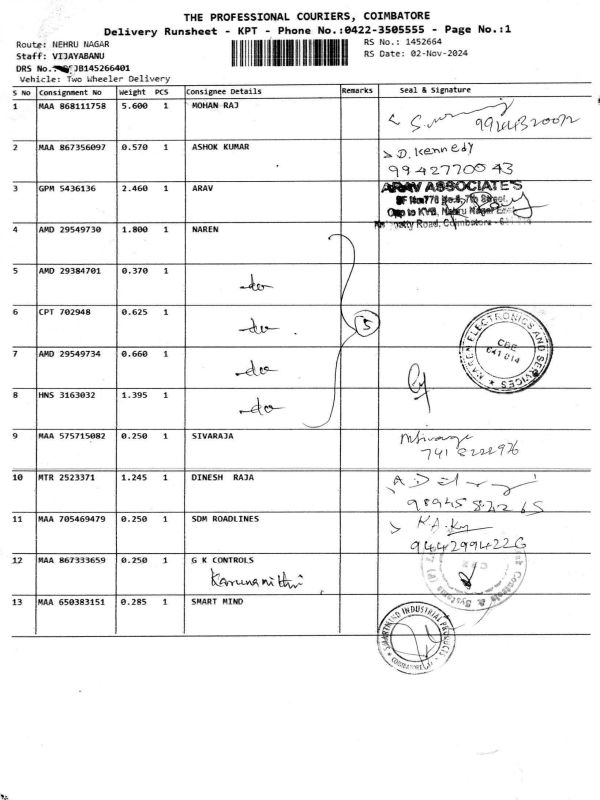 THE PROFESSIONAL COURIERS, COIMBATORE
Delivery Runsheet - KPT - Phone No.:0422-3505555 - Page No.:1
Route: NEHRU NAGAR
RS No.: 1452664
Staff: VIJAYABANU
RS Date: 02-Nov-2024
DRS No. JB145266401
Vehicle: Two Wheeler Delivery
S No Consignment No Weight PCS Consignee Details Remarks Seal & Signature
1 MAA 868111758 5.600 1 MOHAN RAJ
2 MAA 867356097 0.570 1 ASHOK KUMAR
D. Kennedy
99 42770043
3 GPM 5436136 2.460 1 ARAV
ARAV ASSOCIATE'S
Opp to KVB, Nehru Nagar East
Road, Coimbatore - 641 014
4 AMD 29549730 1.800 1 NAREN
5 AMD 29384701 0.370 1
-do-
6 CPT 702948 0.625 1
-do-
5
NAREN ELECTRONICS AND SERVICES
CBE
641 014
7 AMD 29549734 0.660 1
-do-
8 HNS 3163032 1.395 1
-do-
9 MAA 575715082 0.250 1 SIVARAJA
10 MTR 2523371 1.245 1 DINESH RAJA
11 MAA 705469479 0.250 1 SDM ROADLINES
9442994226
12 MAA 867333659 0.250 1 G K CONTROLS
Karunanithi
Controls & Systems (P)
13 MAA 650383151 0.285 1 SMART MIND
SMARTMIND INDUSTRIAL PRODUCTS
COIMBATORE